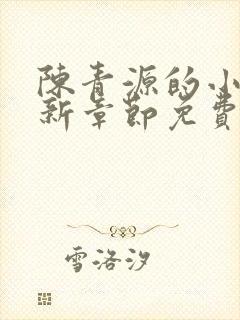 陳青源的小
新章節免費
雪洛汐